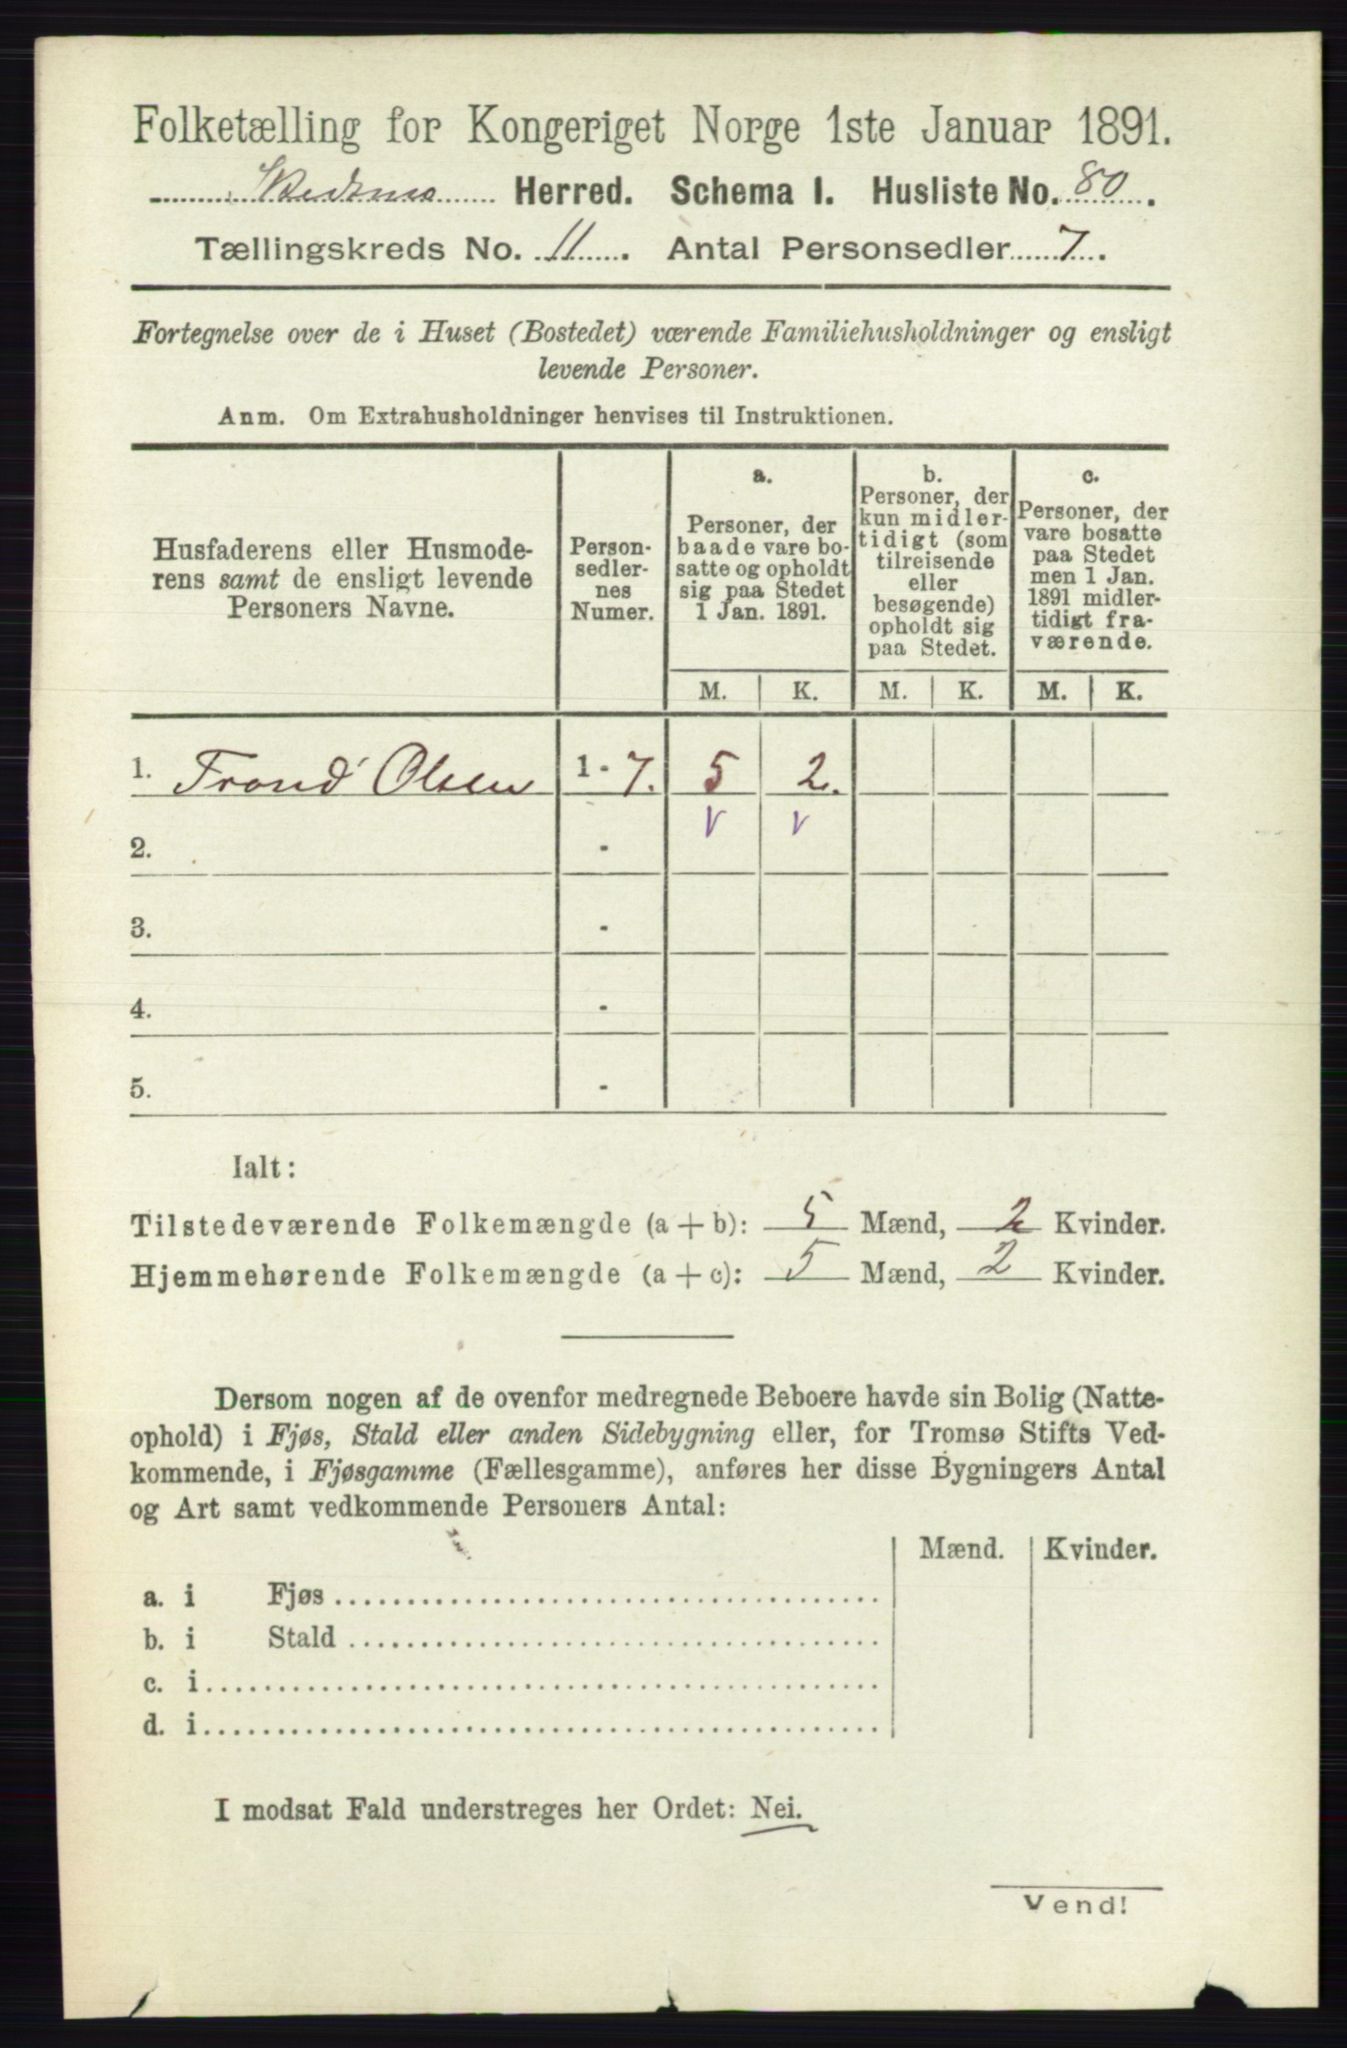 Folketælling for Kongeriget Norge 1ste Januar 1891.
Skedsmo Herred. Schema I. Husliste No. 80.
Tællingskreds No. 11. Antal Personsedler 7.
Fortegnelse over de i Huset (Bostedet) værende Familiehusholdninger og ensligt
levende Personer.
Anm. Om Extrahusholdninger henvises til Instruktionen.
Husfaderens eller Husmode-
rens samt de ensligt levende
Personers Navne.
Person-
sedler-
nes
Numer.
a.
Personer, der
baade vare bo-
satte og opholdt
sig paa Stedet
1 Jan. 1891.
b.
Personer, der
kun midler-
tidigt (som
tilreisende
eller
besøgende)
opholdt sig
paa Stedet.
c.
Personer, der
vare bosatte
paa Stedet
men 1 Jan.
1891 midler-
tidigt fra-
værende.
M. K. M. K. M. K.
1. Trond Olsen 1 - 7. 5 2.
v v
2. -
3. -
4. -
5. -
Ialt:
Tilstedeværende Folkemængde (a + b): 5 Mænd, 2 Kvinder.
Hjemmehørende Folkemængde (a + c): 5 Mænd, 2 Kvinder.
Dersom nogen af de ovenfor medregnede Beboere havde sin Bolig (Natte-
ophold) i Fjøs, Stald eller anden Sidebygning eller, for Tromsø Stifts Ved-
kommende, i Fjøsgamme (Fællesgamme), anføres her disse Bygningers Antal
og Art samt vedkommende Personers Antal:
Mænd. Kvinder.
a. i Fjøs
b. i Stald
c. i
d. i
I modsat Fald understreges her Ordet: Nei.
Vend!